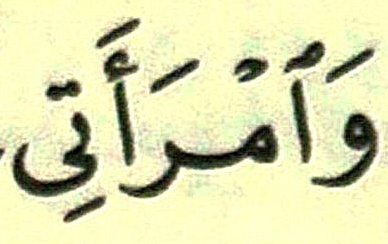 وَٱمْرَأَتِي